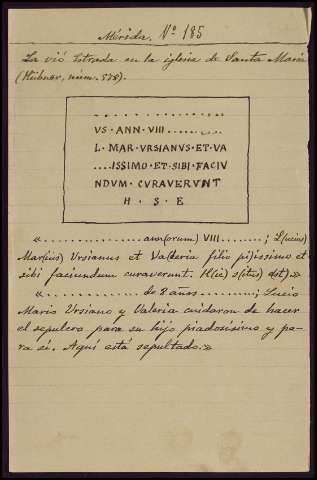 Mérida. Nº 185
La vió Estrada en la iglesia de Santa María
(Hübner, núm. 578).
. . . . . . . . . . . . . . . .
VS · ANN · VIII . . . . . . . .
L · MAR · VRSIANVS · ET · VA
. . . . ISSIMO · ET · SIBI · FACIV
NDVM · CVRAVERVNT
H · S · E
«. . . . . . . . . . . . . . ann(orum) VIII . . . . . . . ; L(ucius)
Mar(ius) Vrsianus et Va(leria filio pi)issimo et
sibi faciundum curaverunt. H(ic) s(itus) e(st).»
«. . . . . . . . . . . . . . de 8 años . . . . . . . . . . ; Lucio
Mario Ursiano y Valeria cuidaron de hacer
el sepulcro para su hijo piadosísimo y pa-
ra sí. Aquí está sepultado.»